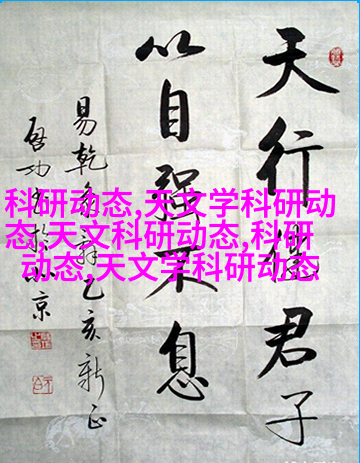 天行健君子
以自强不息
易乾象辞乙亥新正
启功书於北京
科研动态,天文学科研动
态,天文科研动态,科研
动态,天文学科研动态